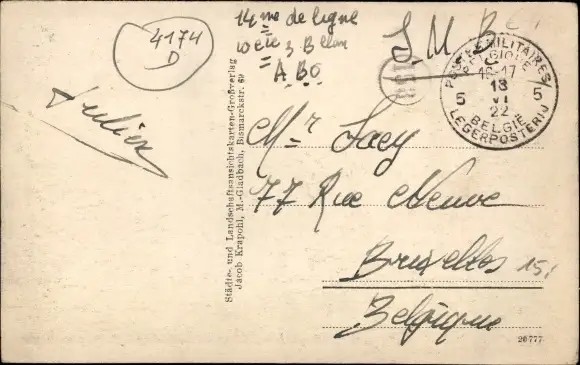 4174
D
14me de ligne
10 Cie 3 B
A.B.O
S. M. B
POSTES MILITAIRES
BELGIQUE
16-17
13
VI
22
5 5
BELGIE
LEGERPOSTERIJ
Julien
Mr Jacy
77 Rue Neuve
Bruxelles
Belgique
Städte- und Landschaftsansichtskarten-Großverlag
Jacob Krapohl, M.-Gladbach, Bismarckstr. 69
26777